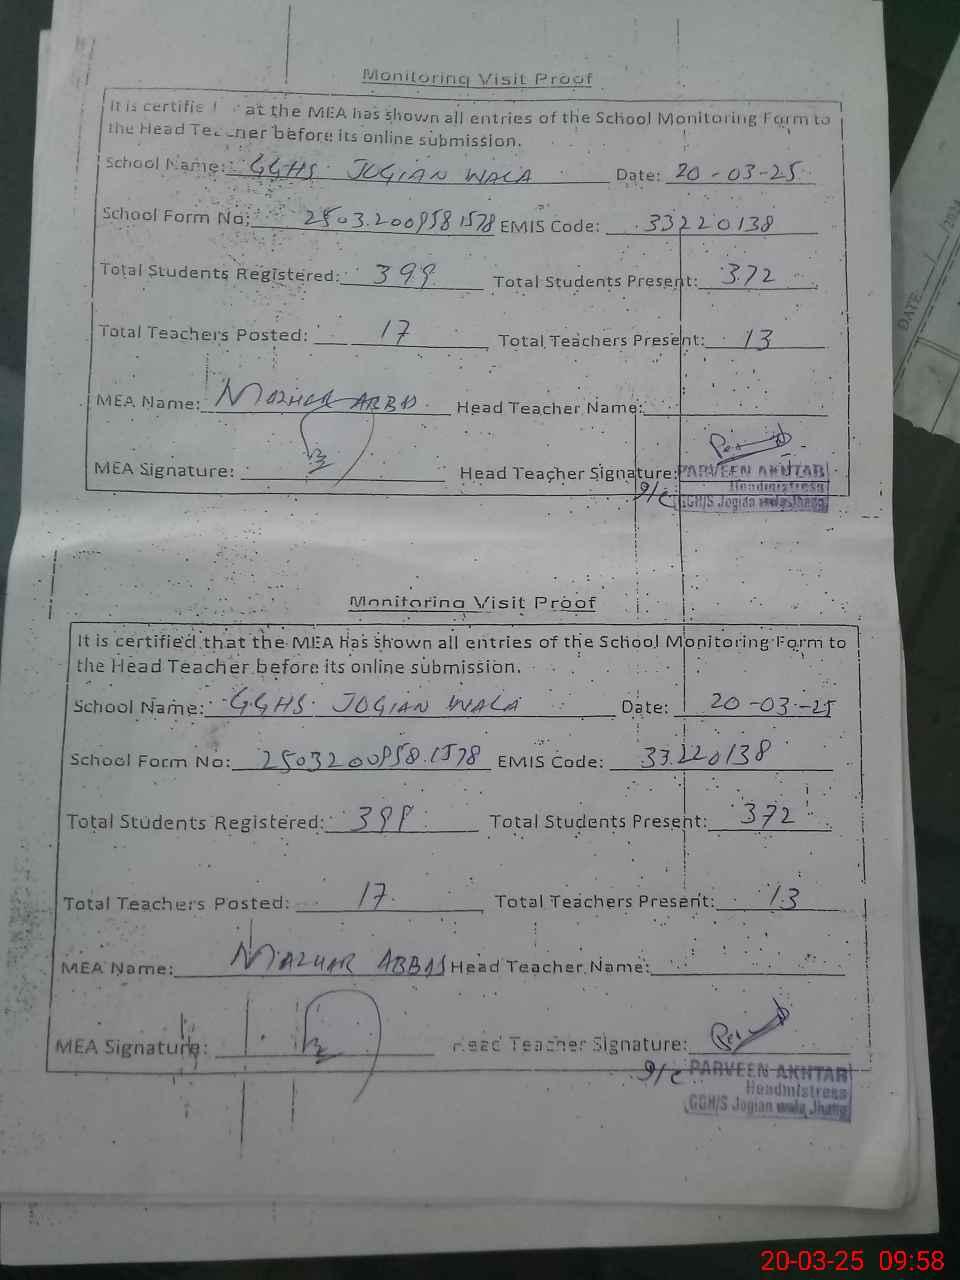 Monitoring Visit Proof
It is certifie at the MEA has shown all entries of the School Monitoring Form to
the Head Teacher before its online submission.
School Name: GGHS JOGIAN WALA Date: 20-03-25
School Form No: 25032009581578 EMIS Code: 33220138
Total Students Registered: 399 Total Students Present: 372
Total Teachers Posted: 17 Total Teachers Present: 13
MEA Name: MAZHAR ABBAS Head Teacher Name:
MEA Signature: Head Teacher Signature:
PARVEEN AKHTAR
I/C Headmistress
GGH/S Jogian wala Jhang
Monitoring Visit Proof
It is certified that the MEA has shown all entries of the School Monitoring Form to
the Head Teacher before its online submission.
School Name: GGHS JOGIAN WALA Date: 20-03-25
School Form No: 25032009581578 EMIS Code: 33220138
Total Students Registered: 399 Total Students Present: 372
Total Teachers Posted: 17 Total Teachers Present: 13
MEA Name: MAZHAR ABBAS Head Teacher Name:
MEA Signature: Head Teacher Signature:
I/C PARVEEN AKHTAR
Headmistress
GGH/S Jogian wala Jhang
DATE
20-03-25 09:58